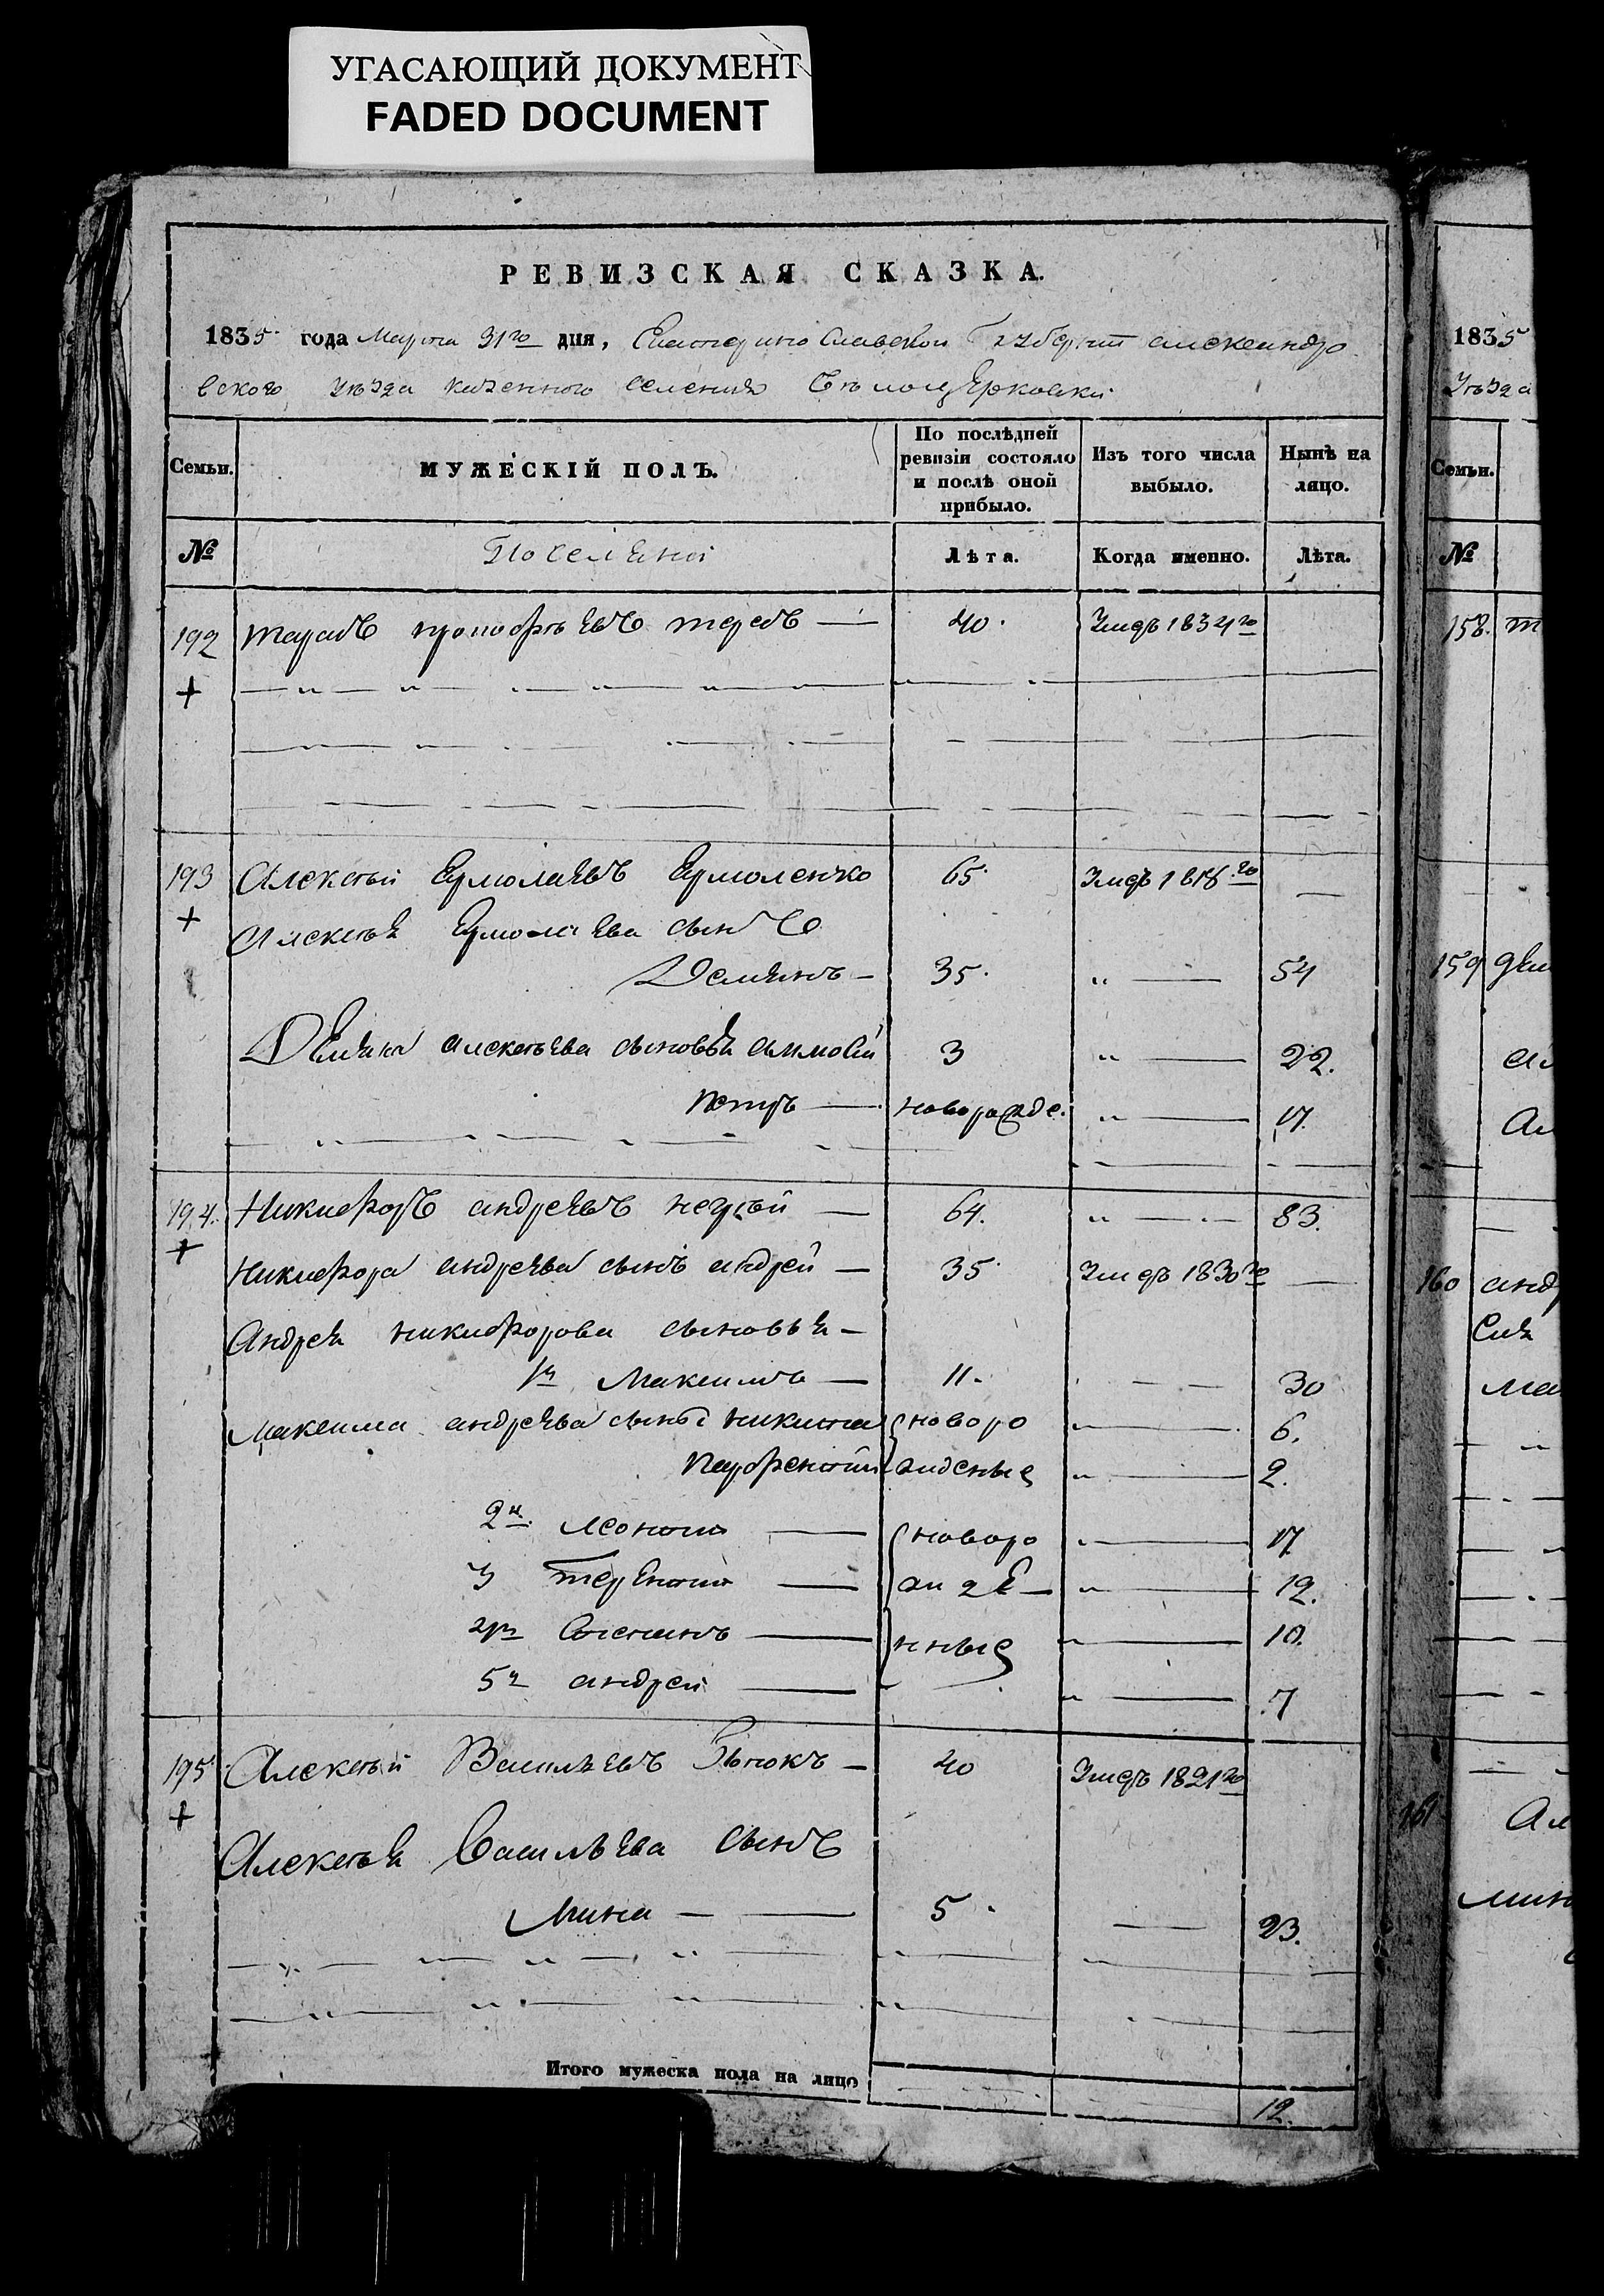 УГАСАЮЩИЙ ДОКУМЕНТ
FADED DOCUMENT
РЕВИЗСКАЯ СКАЗКА.
1835 года Марта 31го дня, Екатерино Славской Губернии александро
вского уѣзда казенного селения Бѣлоцерковки
Семьи.
МУЖЕСКІЙ ПОЛЪ.
По послѣдней ревизіи состояло и послѣ оной прибыло.
Изъ того числа выбыло.
Нынѣ на лицо.
№
Лѣта.
Когда именно.
Лѣта.
192 тарасъ прокофьевъ 40. Умеръ 1834го
+
193 Алексѣй Ермолаевъ Ермоленко 65. Умеръ 1818го —
+ Алексѣя Ермолаева сынъ
Демянъ — 35. " — 54
Демяна алексѣева сыновья 3 " — 22.
петръ — новорожде. " — 17.
194. Никифоръ андреевъ — 64. " — 83.
+
Никифора андреева сынъ андрей — 35. Умеръ 1830го —
Андрея никифорова сыновья —
1й Максимъ — 11. — 30
Максима андреева сыны никита новоро — 6.
жденые " — 2.
2й. леонтий — новоро — 17
3 терентий — жде — " — 12.
4й Степанъ — нные " — 10.
5й андрей — " — 7
195 Алексѣй Васильевъ 40 Умеръ 1821го
+
Алексѣя Васильева сынъ
Мина — — 5. — 23.
Итого мужеска пола на лицо
12.
1835
Уѣзда
Семьи.
№
158.
159
160 андр
161